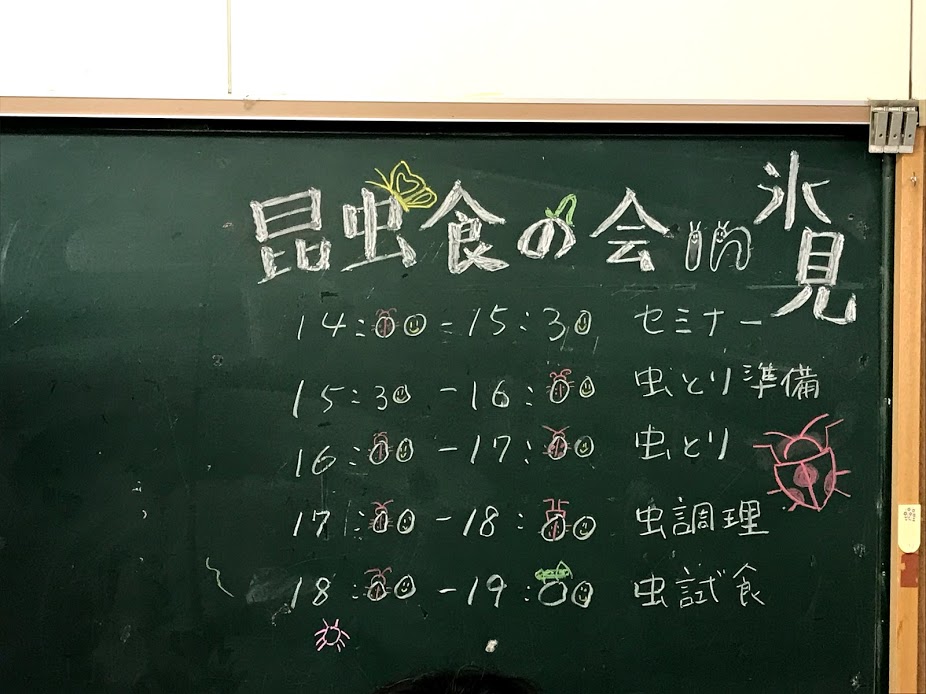 昆虫食の会 in 氷見
14:00-15:30 セミナー
15:30-16:00 虫とり準備
16:00-17:00 虫とり
17:00-18:00 虫調理
18:00-19:00 虫試食